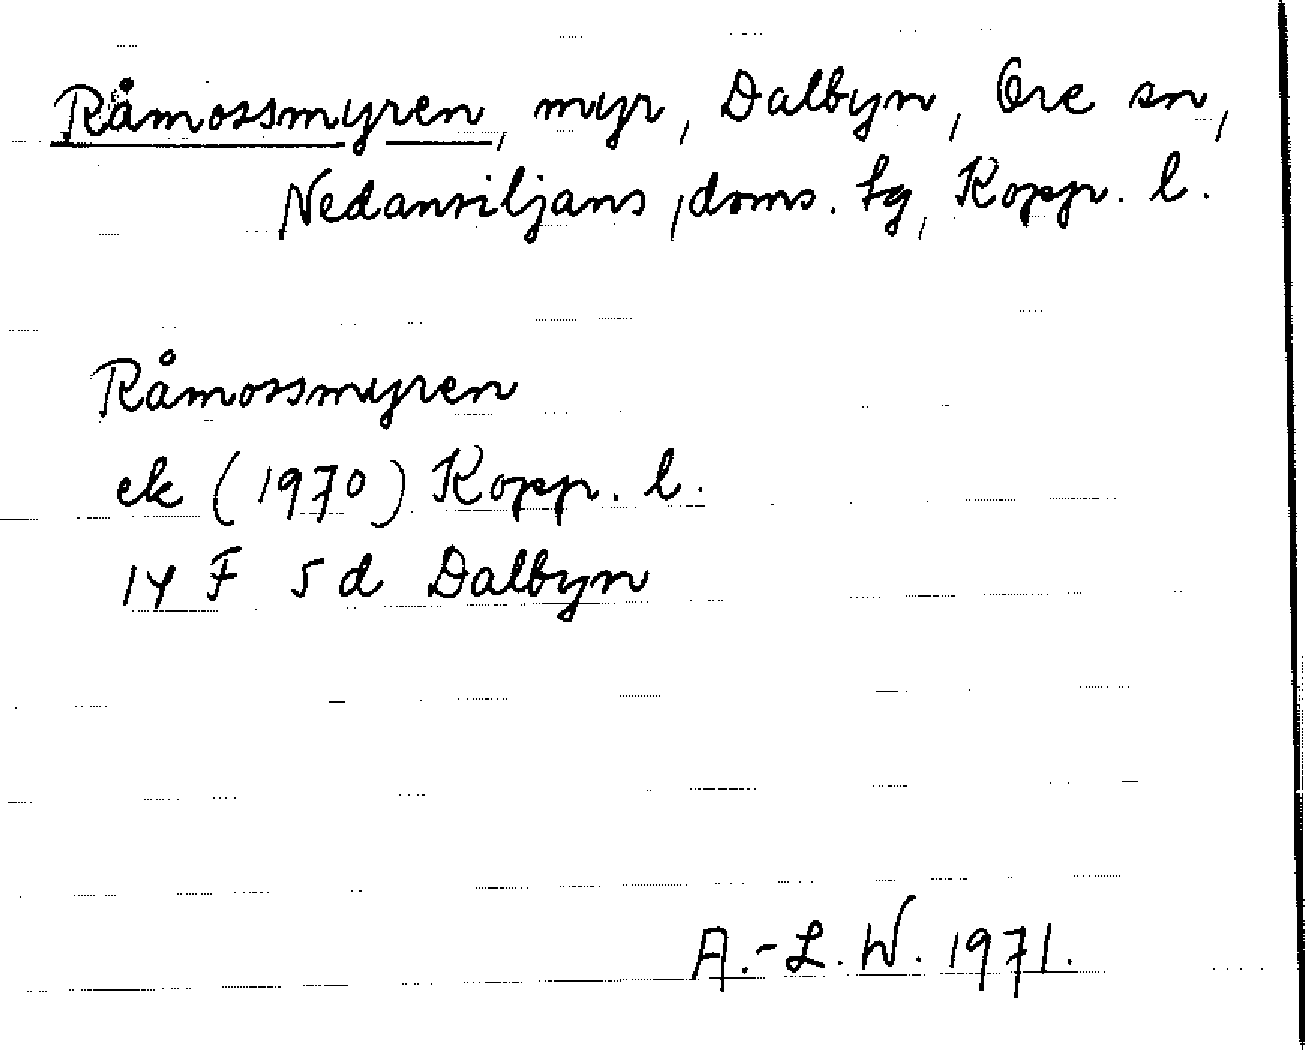 Råmossmyren, myr, Dalbyn, Ore sn,
Nedansiljans, doms. tg, Kopp. l.
Råmossmyren
ek (1970) Kopp. l.
14 F 5 d Dalbyn
A.-L. W. 1971.